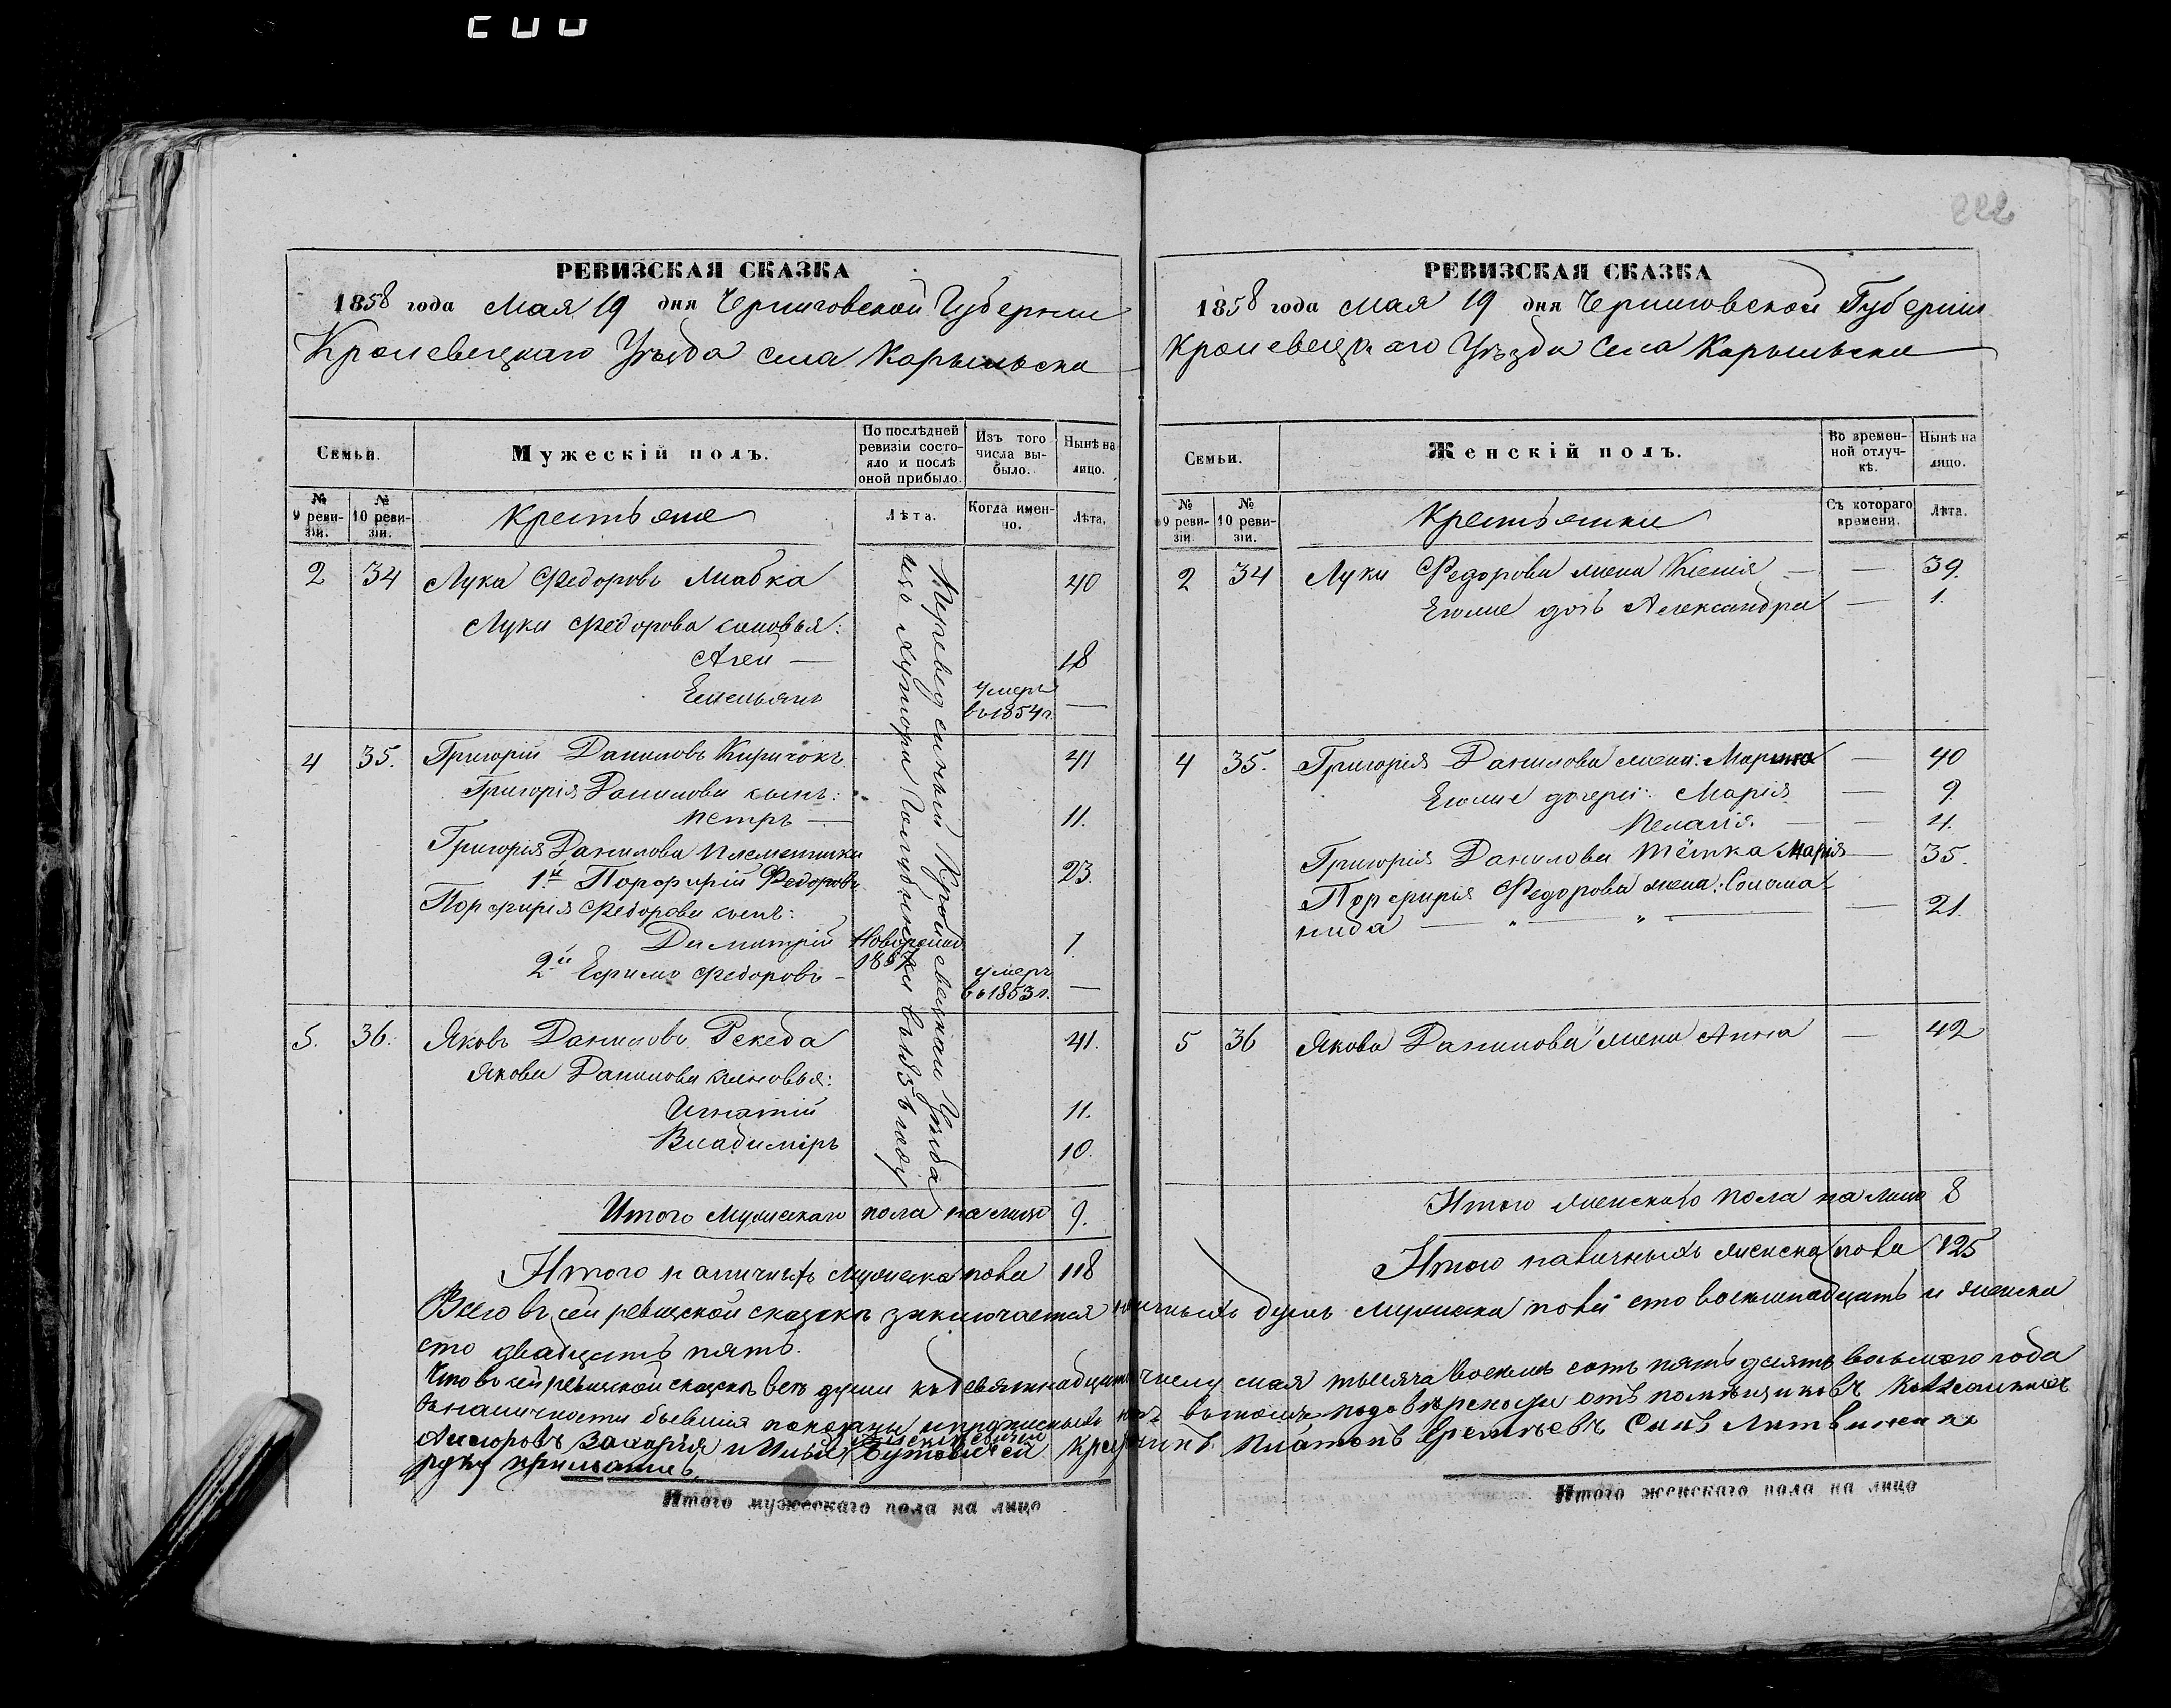 222
РЕВИЗСКАЯ СКАЗКА
1858 года Мая 19 дня Черниговской Губернии
Кролевецкаго Уѣзда села Карыльска
Семьи. Мужескій полъ. По послѣдней ревизіи состояло и послѣ оной прибыло. Изъ того числа выбыло. Нынѣ на лицо.
№ 9 ревизіи. № 10 ревизіи. Крестьяне Лѣта. Когда именно. Лѣта.
2 34 Лука Федоровъ Лабка 40
Луки Федорова сыновья:
Агей — 18
Емельянъ умеръ въ 1854 г. —
4 35. Григорій Даниловъ Киричокъ 41
Григорія Данилова сынъ:
Петръ — 11.
Григорія Данилова племянники
1й Порфирій Федоровъ 23.
Порфирія Федорова сынъ:
Димитрій Новорожд 1857 1.
2й Ефимъ Федоровъ — умеръ въ 1853 г. —
5. 36. Яковъ Даниловъ Рекеда 41.
Якова Данилова сыновья:
Игнатій 11.
Владиміръ 10.
Кролевецкаго Уѣзда
изъ хутора въ 1851 году
Итого мужескаго пола на лицо 9.
Итого наличныхъ мужеска пола 118
РЕВИЗСКАЯ СКАЗКА
1858 года мая 19 дня Черниговской Губерніи
Кролевецкаго Уѣзда Села Карыльска
Семьи. Женскій полъ. Во временной отлучкѣ. Нынѣ на лицо.
№ 9 ревизіи № 10 ревизіи. Крестьянки Съ котораго времени. Лѣта.
2 34 Луки Федорова жена Ксенія — — 39.
Его же дочь Александра — 1.
4 35. Григорія Данилова жена: Марина — 40
Его же дочери: Марія — 9
Пелагія. — — 4.
Григорія Данилова тётка Марія — 35.
Порфирія Федорова жена: Солома-
нида — " — " — 21.
5 36 Якова Данилова жена Анна — 42
Итого женскаго пола на лицо 8
Итого наличныхъ женска пола 125
Всего въ сей ревизской сказкѣ заключается наличныхъ душъ мужеска пола сто восемнадцать и женска
сто двадцать пять.
Что въ сей ревизской сказкѣ всѣ души къ девятнадцатому числу мая тысяча восемь сотъ пятьдесятъ восьмого года
въ наличности бывшія показаны и прописныхъ нѣтъ въ томъ подовѣренности отъ помѣщиковъ
Захарія и Ильи Бутовичей Платонъ Сынъ Литвиненко
руку приложилъ.
Итого мужескаго пола на лицо
Итого женскаго пола на лицо